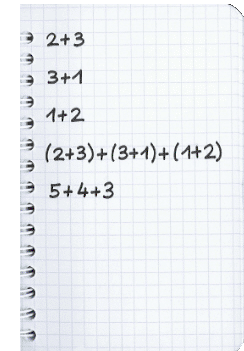 2+3
3+1
1+2
(2+3)+(3+1)+(1+2)
5+4+3